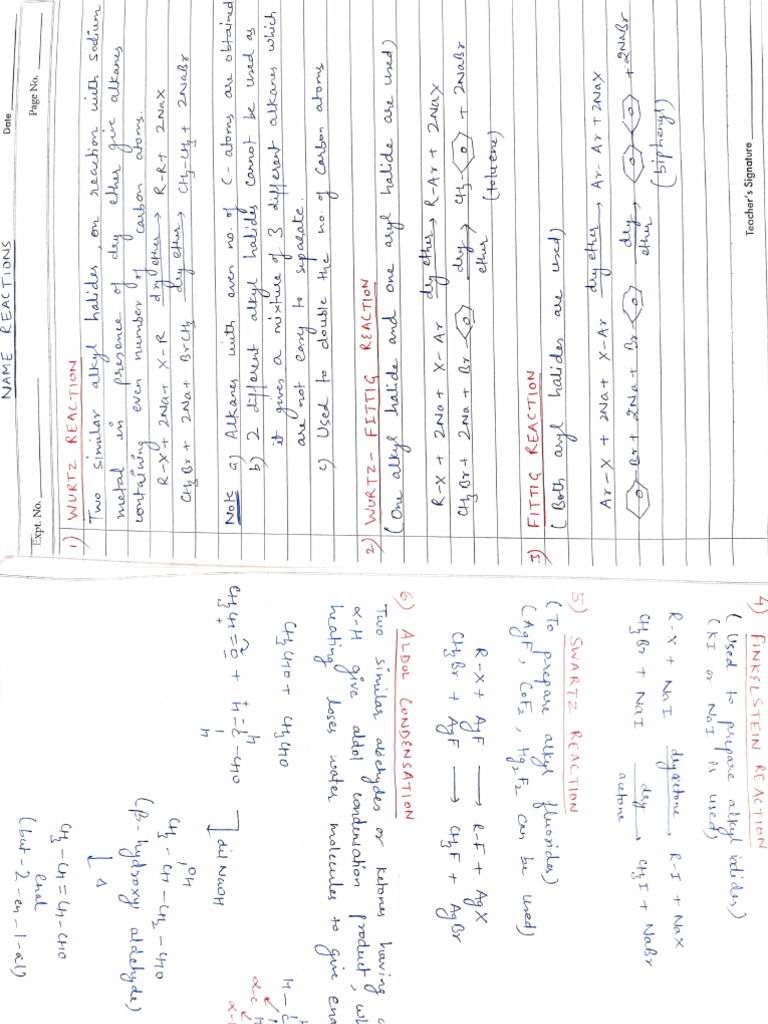 Date
Expt. No.
Page No.
NAME REACTIONS
1) WURTZ REACTION
Two similar alkyl halides, on reaction with sodium
metal in presence of dry ether give alkanes
containing even number of carbon atoms.
R-X + 2Na + X-R dry ether → R-R + 2NaX
CH3Br + 2Na + BrCH3 dry ether → CH3-CH3 + 2NaBr
Note a) Alkanes with even no. of C-atoms are obtained
b) 2 different alkyl halides cannot be used as
it gives a mixture of 3 different alkanes which
are not easy to separate.
c) Used to double the no. of carbon atoms
2) WURTZ-FITTIG REACTION
(One alkyl halide and one aryl halide are used)
R-X + 2Na + X-Ar dry ether → R-Ar + 2NaX
CH3Br + 2Na + Br- dry ether → CH3- + 2NaBr
(toluene)
3) FITTIG REACTION
(Both aryl halides are used)
Ar-X + 2Na + X-Ar dry ether → Ar-Ar + 2NaX
-Br + 2Na + Br- dry ether → + 2NaBr
(biphenyl)
Teacher's Signature
4) FINKELSTEIN REACTION
(Used to prepare alkyl iodides)
(KI or NaI is used)
R-X + NaI dry acetone → R-I + NaX
CH3Br + NaI dry acetone → CH3I + NaBr
5) SWARTZ REACTION
(To prepare alkyl fluorides)
(AgF, CoF2, Hg2F2 can be used)
R-X + AgF → R-F + AgX
CH3Br + AgF → CH3F + AgBr
6) ALDOL CONDENSATION
Two similar aldehydes or ketones having
α-H give aldol condensation product,
heating loses water molecules to give
CH3CHO + CH3CHO
CH3CH=O + H-C-CHO
H
H
dil NaOH
OH
CH3-CH-CH2-CHO
(β-hydroxy aldehyde)
Δ
CH3-CH=CH-CHO
enal
(but-2-en-1-al)
α-c